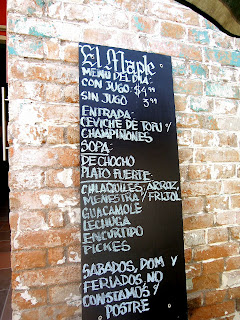 El Maple
MENÚ DEL DIA:
CON JUGO: $4.99
SIN JUGO 3.99
ENTRADA:
CEVICHE DE TOFU y/
CHAMPIÑONES
SOPA:
DE CHOCHO
PLATO FUERTE:
CHILAQUILES, ARROZ,
MENESTRA / FRIJOL
GUACAMOLE
LECHUGA
ENCURTIDO
PICKES
SABADOS, DOM Y
FERIADOS, NO
CONSTAMOS
POSTRE